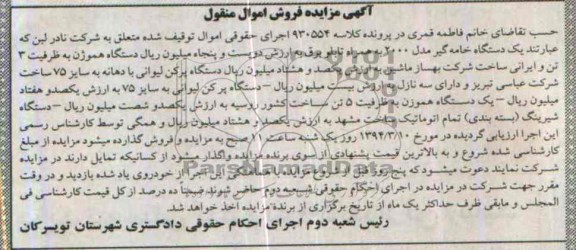 آگهی مزایده فروش اموال منقول
حسب تقاضای خانم فاطمه قمری در پرونده کلاسه ۹۳۰۵۵۴ اجرای حقوقی اموال توقیف شده متعلق به شرکت نادر لین که
عبارتند یک دستگاه خامه گیر مدل ۲۰۰۰ به همراه تابلو برق به ارزش دویست و پنجاه میلیون ریال دستگاه هموژن به ظرفیت ۳
تن و ایرانی ساخت شرکت بهساز ماشین به ارزش یکصد و هشتاد میلیون ریال دستگاه پرکن لیوانی با دهانه به سایز ۷۵ ساخت
شرکت عباسی تبریز و دارای سه نازل به ارزش بیست میلیون ریال – دستگاه پر کن لیوانی به سایز ۷۵ به ارزش یکصدو هفتاد
میلیون ریال – یک دستگاه هموژن به ظرفیت ۵ تن ساخت کشور روسیه به ارزش یکصدو شصت میلیون ریال – دستگاه
شیرینگ (بسته بندی) تمام اتوماتیک ساخت مشهد به ارزش یکصد و هشتاد میلیون ریال و همگی توسط کارشناس رسمی
این اجرا ارزیابی گردیده در مورخ ۱۳۹۴/۳/۱۰ روز یک شنبه ساعت ۱۱ صبح به مزایده و فروش گذارده میشود مزایده از مبلغ
کارشناسی شده شروع و به بالاترین قیمت پیشنهادی از سوی برنده مزایده واگذار میشود از کسانیکه تمایل دارند در مزایده
شرکت نمایند دعوت میشود که پنج روز قبل از مزایده از خودروی یاد شده بازدید و در وقت
مقرر جهت شرکت در مزایده در اجرای احکام حقوقی شعبه دوم حاضر شوند ضمنا ده درصد از کل قیمت کارشناسی فی
المجلس و مابقی ظرف حداکثر یک ماه از تاریخ برگزاری از برنده مزایده اخذ خواهد شد.
رئیس شعبه دوم اجرای احکام حقوقی دادگستری شهرستان تویسرکان